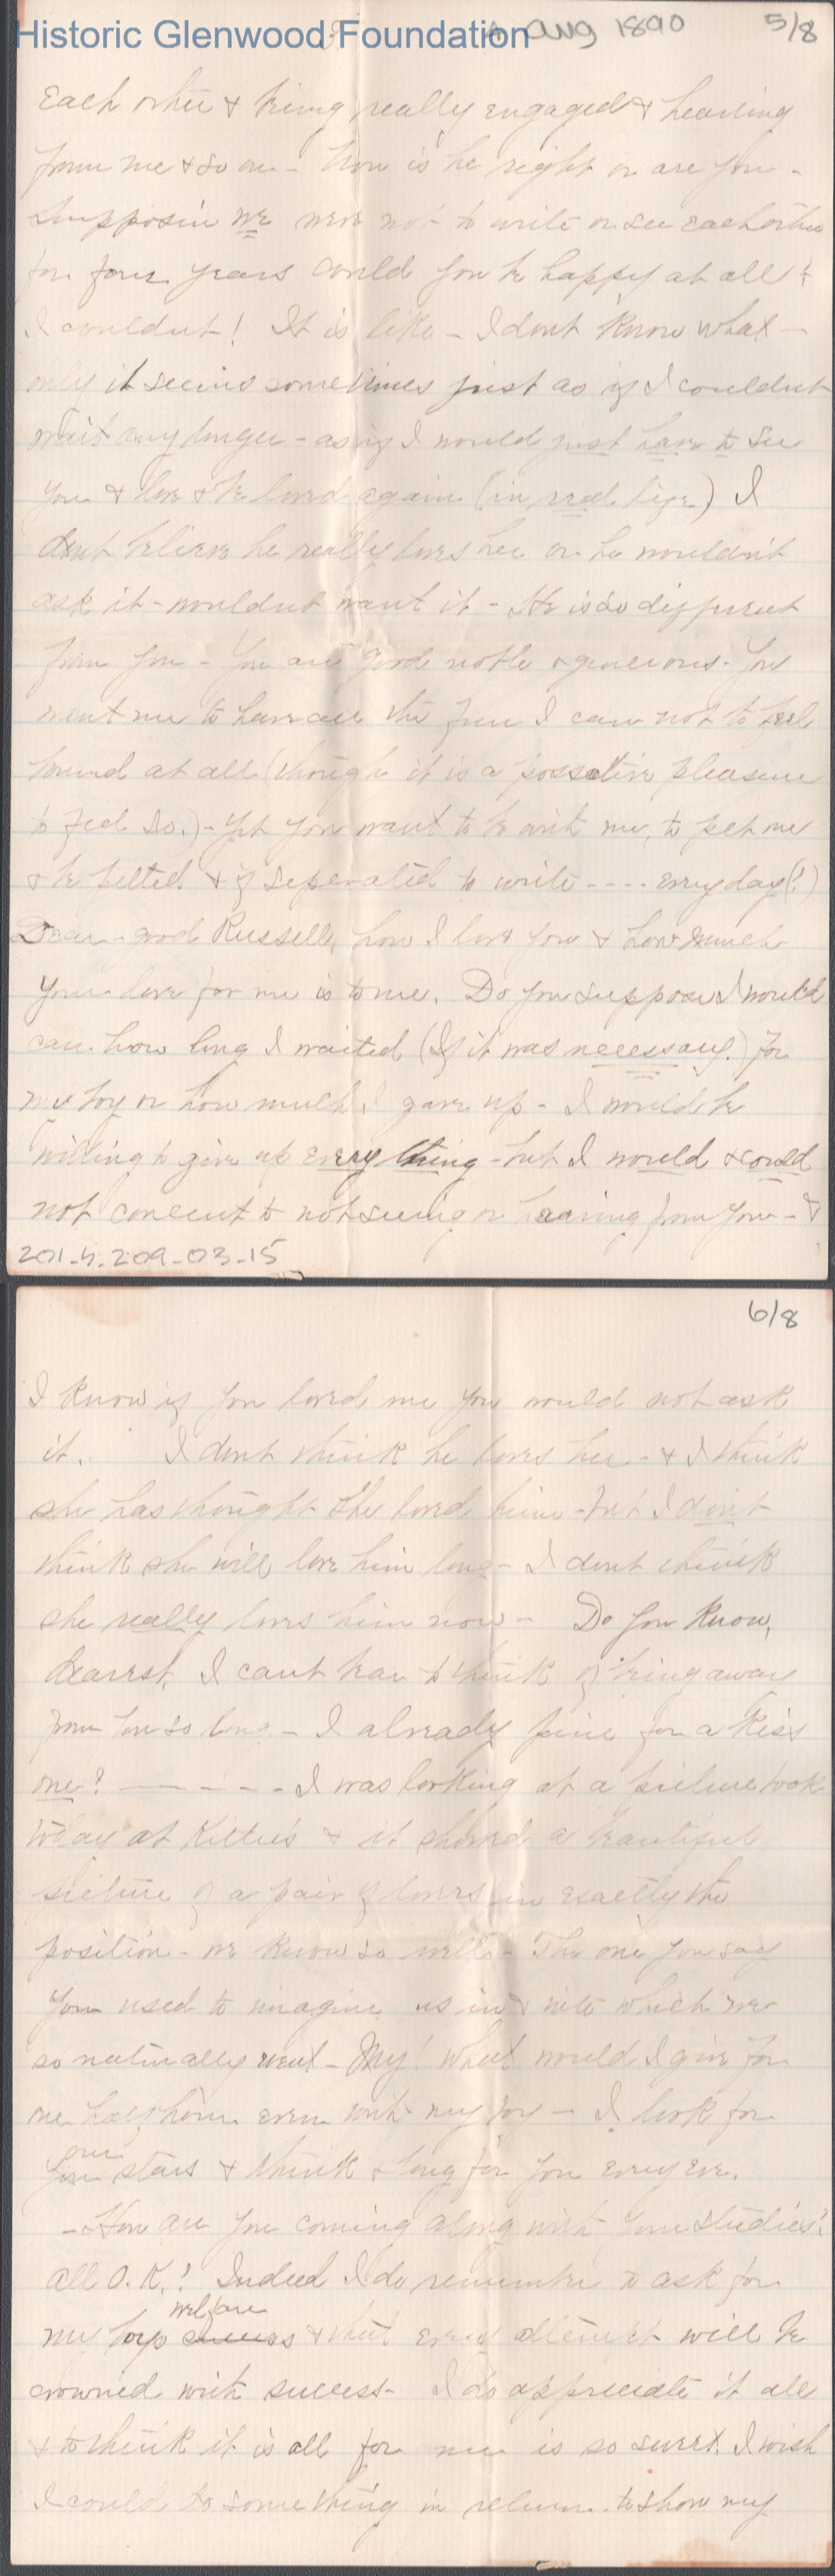 Historic Glenwood Foundation
4 Aug 1890 5/8
Each other & being really engaged & hearing
from me & so on - Now is he right or are you -
Supposin we were not to write or see eachother
for four years could you be happy at all?
I couldnt! It is like - I dont know what -
only it seems sometimes just as if I couldnt
wait any longer - as if I would just have to see
you & love & be loved again (in real life) I
dont believe he really loves her or he wouldn't
ask it - wouldnt want it - He is so different
from you - You are good noble & generous. You
want me to have all the fun I can not to feel
bound at all (though it is a possative pleasure
to feel so.) - Yet you want to be with me, to pet me
& be petted & if seperated to write - - - - every day (!)
Dear - good Russell, how I love you & how much
your love for me is to me. Do you suppose I would
care how long I waited (If it was necessary.) for
my boy or how much I gave up - I would be
willing to give up every thing - but I would & could
not concent to not seeing or hearing from you - &
201.4.209-03-15
6/8
I know if you loved me you would not ask
it. I dont think he loves her - & I think
she has thought she loved him - but I don't
think she will love him long - I dont think
she really loves him now - Do you know,
dearest, I cant bear to think of being away
from you so long - I already pine for a kiss
one? - - - - - I was looking at a picture book
today at Kittie's & it showed a beautiful
picture of a pair of lovers in exactly the
position - we know so well - The one you say
you used to imagine us in & into which we
so naturally went - My! what would I give for
one half hour even with my boy - I look for
our
your stars & think & long for you every eve.
- How are you coming along with your studies?
all O.K.? Indeed I do remember to ask for
welfare
my boys success & that every attempt will be
crowned with success - I do appreciate it all
& to think it is all for me is so sweet. I wish
I could do something in return to show my